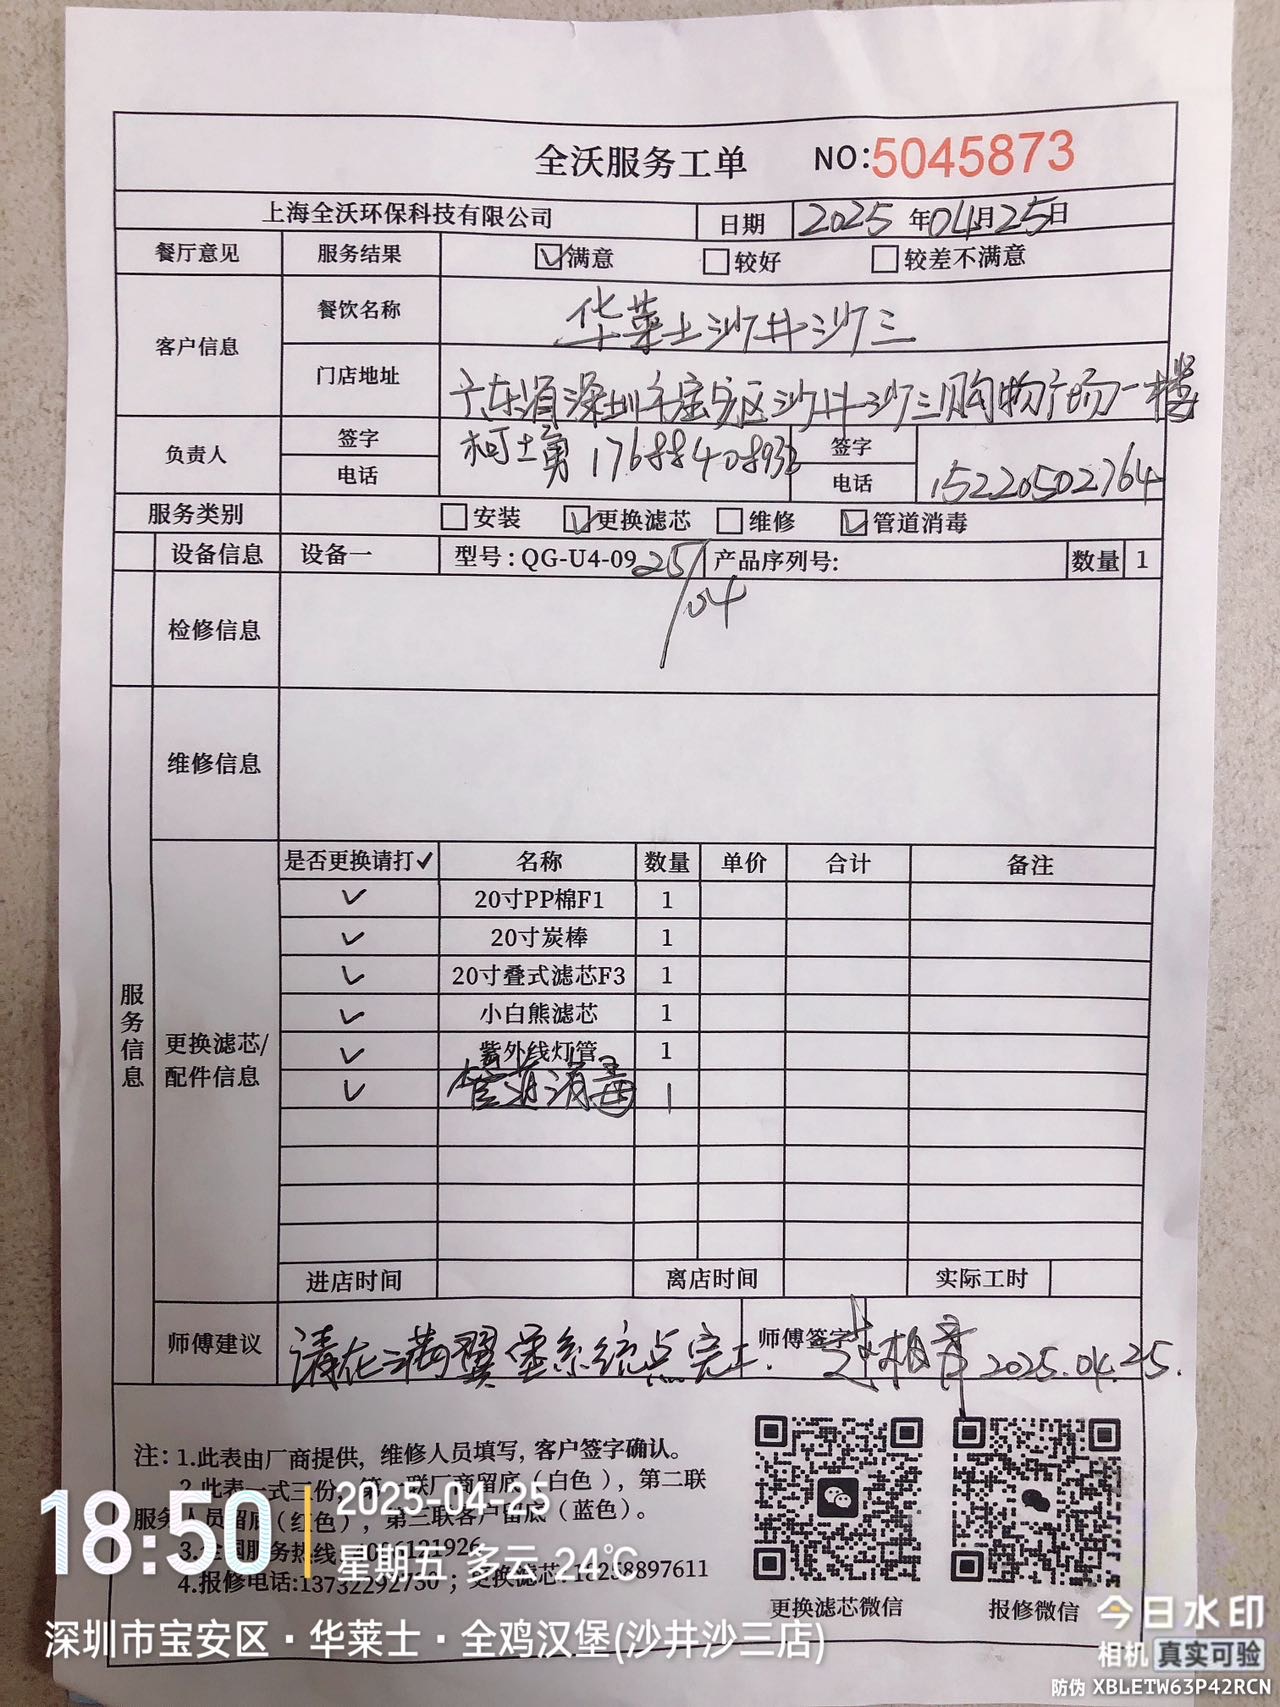 全沃服务工单 NO:5045873
上海全沃环保科技有限公司 日期 2025年04月25日
餐厅意见 服务结果 满意 较好 较差不满意
客户信息 餐饮名称 华莱士沙井沙三
门店地址 广东省深圳市宝安区沙井沙三购物广场一楼
负责人 签字 柯士勇 签字
电话 17688408932 电话 15220502764
服务类别 安装 更换滤芯 维修 管道消毒
设备信息 设备一 型号:QG-U4-09 25/04 产品序列号: 数量 1
检修信息
维修信息
服务信息
更换滤芯/配件信息
是否更换请打✓ 名称 数量 单价 合计 备注
✓ 20寸PP棉F1 1
✓ 20寸炭棒 1
✓ 20寸叠式滤芯F3 1
✓ 小白熊滤芯 1
✓ 紫外线灯管 1
✓ 管道消毒 1
进店时间 离店时间 实际工时
师傅建议 请在满翼 系统点完工. 师傅签字 2025.04.25.
注: 1.此表由厂商提供，维修人员填写，客户签字确认。
2.此表一式三份，第一联厂商留底（白色），第二联
服务人员留底（红色），第三联客户留底（蓝色）。
3.全国服务热线
4.报修电话:13732292730；更换滤芯:18258897611
更换滤芯微信 报修微信
18:50
2025-04-25
星期五 多云 24℃
深圳市宝安区·华莱士·全鸡汉堡(沙井沙三店)
今日水印
相机 真实可验
防伪 XBLETW63P42RCN